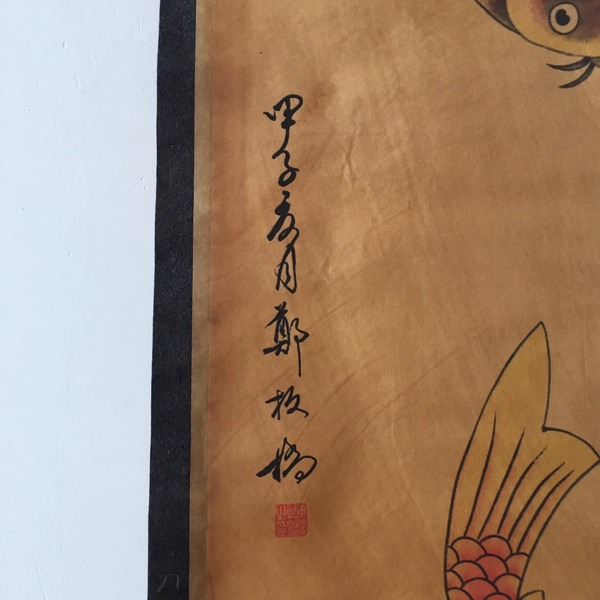 甲子夏月鄭板橋